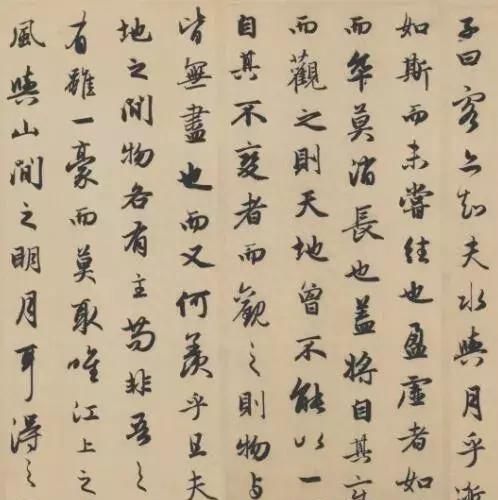 子曰客亦知夫水與月乎逝
如斯而未嘗往也盈虛者如
而卒莫消長也蓋將自其變
而觀之則天地曾不能以一
自其不變者而觀之則物与
皆無盡也而又何羨乎且夫
地之間物各有主苟非吾之
有雖一豪而莫取唯江上之
風與山間之明月耳得之